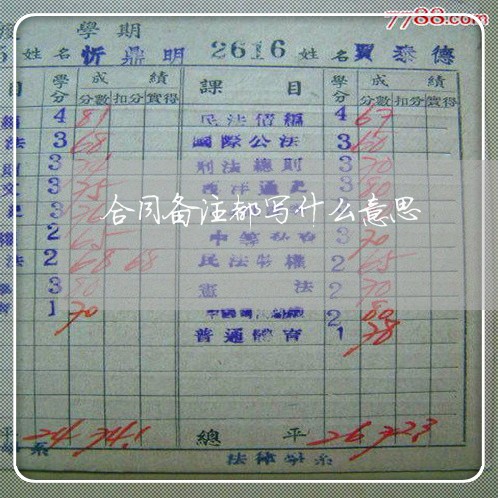 7788.com
學期
姓名 忻鼎明 2616 姓名 賈泰德
目 學分 成績 課目 學分 成績
分數 扣分 實得 分數 扣分 實得
4 81 民法債編 4 67
法 3 68 國際公法 3 60
3 刑法總則 3 70
3 75 西洋通史 3
合同备注都写什么意思
2 65 3 70
法 2 68 68 民法物權 2 65
3 憲法 2 70
1 70 2 80
普通體育 1 78
平 24 74.1 總平 26 72.3
系 法律學系